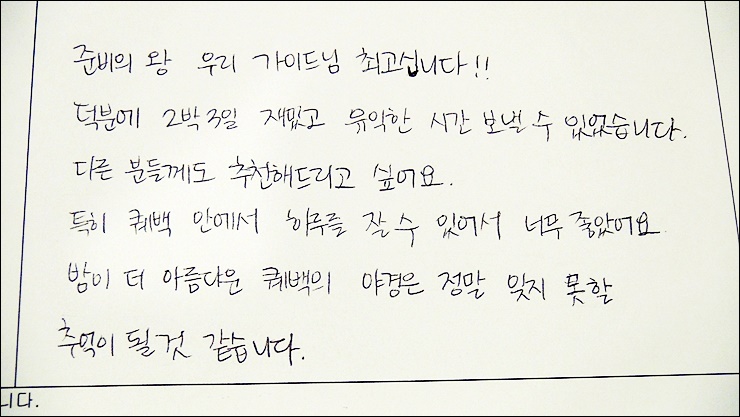 준비의 왕 우리 가이드님 최고십니다!!
덕분에 2박3일 재밌고 유익한 시간 보낼 수 있었습니다.
다른 분들께도 추천해드리고 싶어요.
특히 퀘백 안에서 하루를 잘 수 있어서 너무 좋았어요
밤이 더 아름다운 퀘백의 야경은 정말 잊지 못할
추억이 될것 같습니다.
니다.